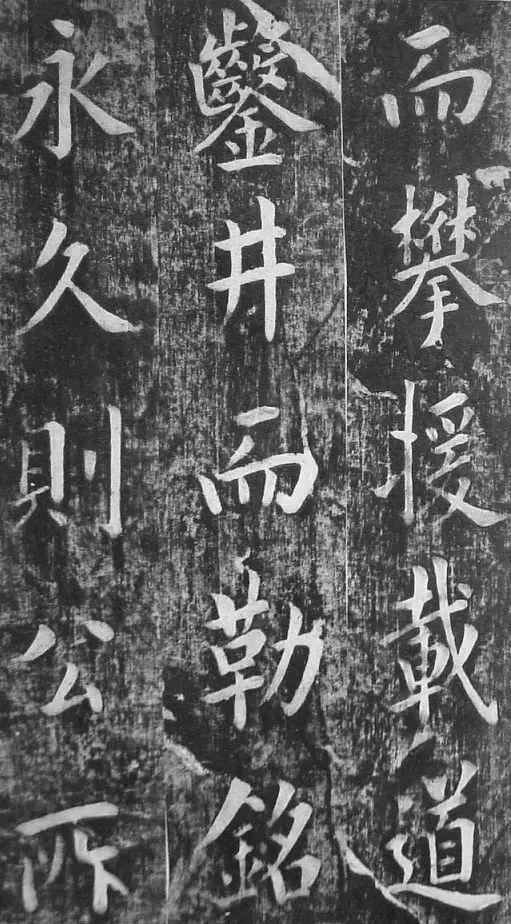 而攀援載道
鑿井而勒銘
永久則公所